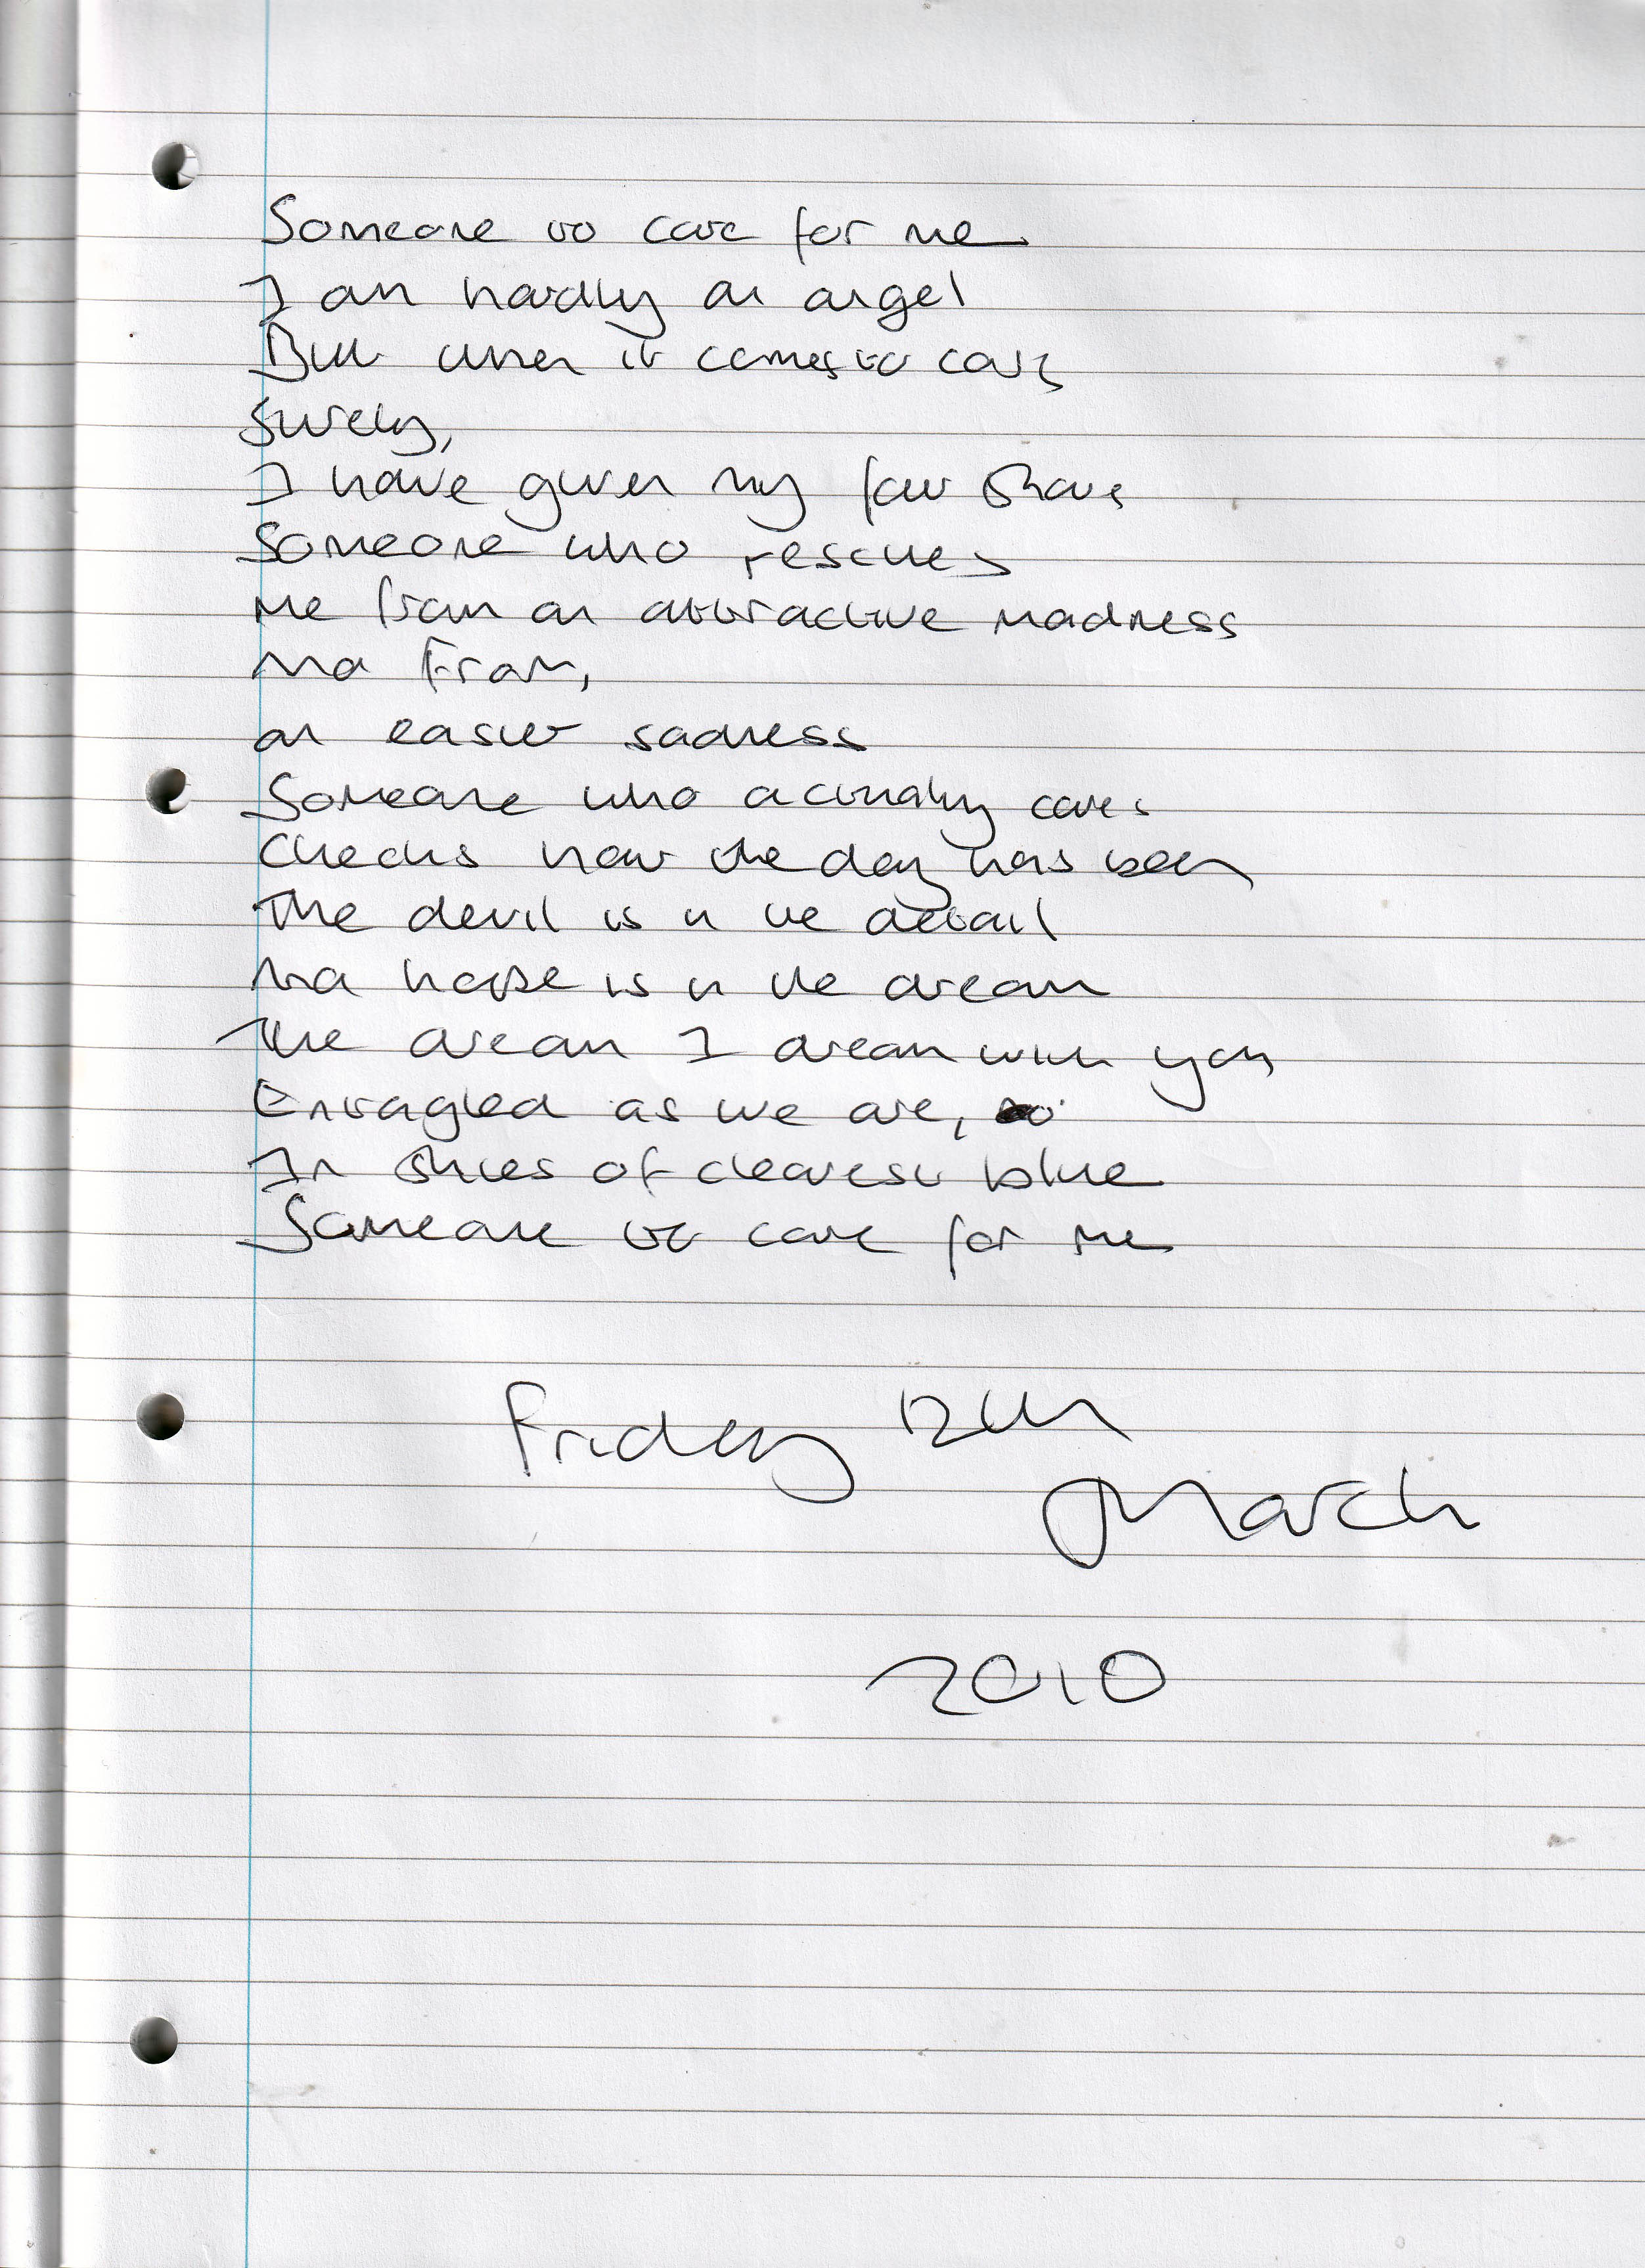 Someone to care for me
I am hardly an angel
But when it comes to care
Surely,
I have given my fair share
Someone who rescues
me from an attractive madness
And From,
an easier sadness
Someone who actually cares
Checks how the day has been
The devil is in the detail
And hope is in the dream
The dream I dream with you
Entangled as we are,
In skies of clearest blue
Someone to care for me
Friday 12th
March
2010